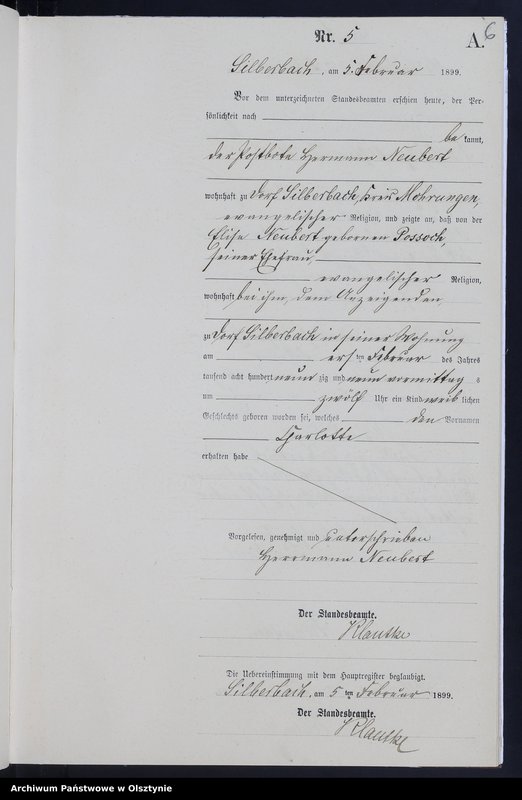 Nr. 5
A. 6
Silberbach, am 5. Februar 1899.
Vor dem unterzeichneten Standesbeamten erschien heute, der Per-
sönlichkeit nach
be kannt,
der Postbote Hermann Neubert
wohnhaft zu Dorf Silberbach, Kreis Mohrungen,
evangelischer Religion, und zeigte an, daß von der
Elise Neubert gebornen Possoch,
seiner Ehefrau,
evangelischer Religion,
wohnhaft bei ihm, dem Anzeigenden
zu Dorf Silberbach in seiner Wohnung
am ersten Februar des Jahres
tausend acht hundert neun zig und neun vormittag s
um zwölf Uhr ein Kind weib lichen
Geschlechts geboren worden sei, welches den Vornamen
Charlotte
erhalten habe
Vorgelesen, genehmigt und unterschrieben
Herrmann Neubert
Der Standesbeamte.
Klautke
Die Uebereinstimmung mit dem Hauptregister beglaubigt.
Silberbach, am 5 ten Februar 1899.
Der Standesbeamte.
Klautke
Archiwum Państwowe w Olsztynie